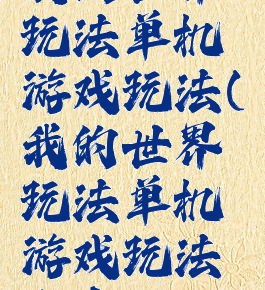 玩法单机
游戏玩法(
我的世界
玩法单机
游戏玩法